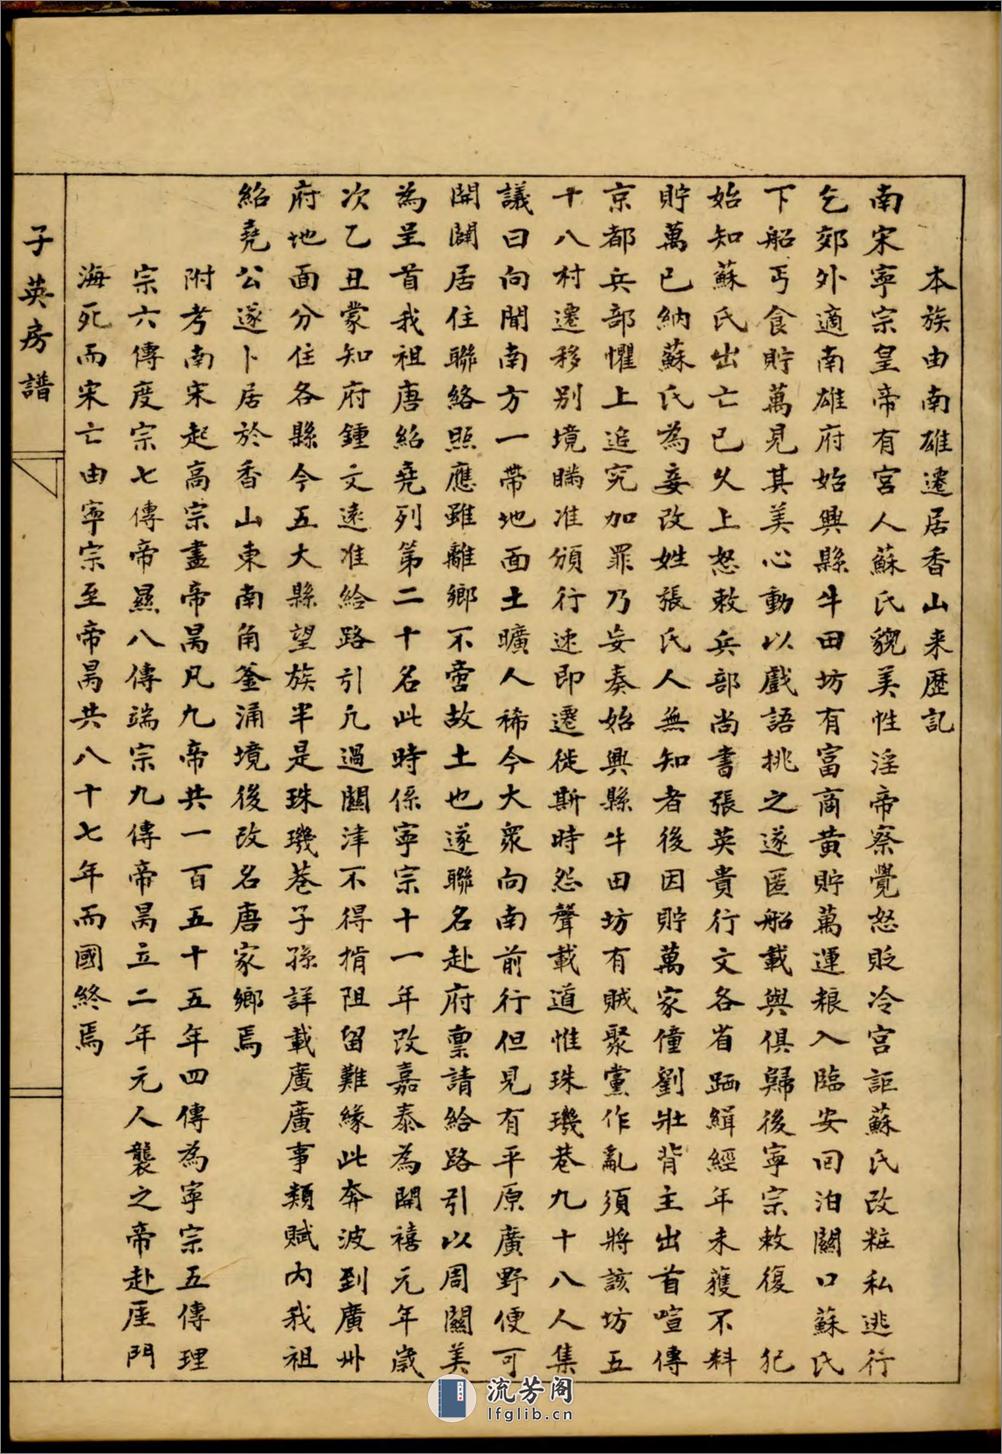 本族由南雄遷居香山来歷記
南宋寧宗皇帝有宮人蘇氏貌美性淫帝察覺怒貶冷宮詎蘇氏改粧私逃行
乞郊外適南雄府始興縣牛田坊有富商黃貯萬運粮入臨安回泊關口蘇氏
下船丐食貯萬見其美心動以戲語挑之遂匿船載與俱歸後寧宗敕復犯
始知蘇氏出亡已乆上怒敕兵部尚書張英貴行文各省跴緝經年未獲不料
貯萬已納蘇氏為妾改姓張氏人無知者後因貯萬家僮劉壯背主出首喧傳
京都兵部懼上追究加罪乃妄奏始興縣牛田坊有賊聚黨作亂須將該坊五
十八村遷移別境瞞准頒行速即遷徙斯時怨聲載道惟珠璣巷九十八人集
議曰向聞南方一帶地面土曠人稀今大衆向南前行但見有平原廣野便可
開闢居住聯絡照應雖離鄉不啻故土也遂聯名赴府禀請給路引以周關美
為呈首我祖唐紹堯列第二十名此時係寧宗十一年改嘉泰為開禧元年歲
次乙丑蒙知府鍾文遠准給路引凢過關津不得揹阻留難緣此奔波到廣州
府地面分住各縣今五大縣望族半是珠璣巷子孫詳載廣廣事類賦內我祖
紹堯公遂卜居於香山東南角釜涌境後改名唐家鄉焉
附考南宋起高宗盡帝昺凡九帝共一百五十五年四傳為寧宗五傳理
宗六傳度宗七傳帝㬎八傳端宗九傳帝昺立二年元人襲之帝赴厓門
海死而宋亡由寧宗至帝昺共八十七年而國終焉
子英房譜
流芳阁
lfglib.cn